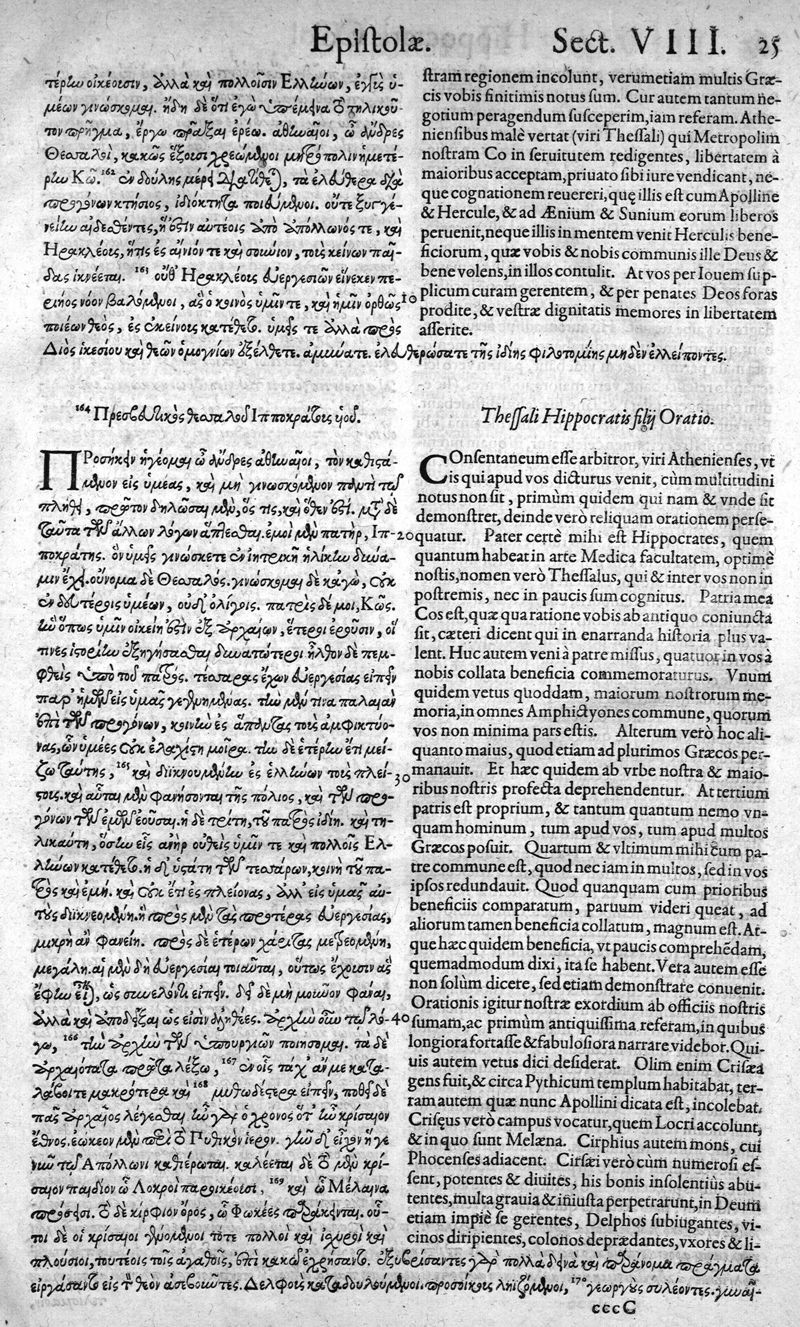 Epiſtolæ. Sect. VIII. 25
τέρῳ οἰκέοισιν, ἀλλὰ καὶ πολλοῖσιν Ἑλλήνων, ἐγγὺς ὑ-
μέων γινώσκομαι. ἤδη δὲ ὅτι ἐγὼ ὑπέμεινα τὸ τηλικοῦ-
τον πρῆγμα, ἔργῳ πρᾶξαι ἐρέω. ἀθηναῖοι, ὦ ἄνδρες
Θεσσαλοὶ, κακῶς ἕξοισι χρεώμενοι μητρόπολιν ἡμετέ-
ρην Κῶ. 162 ἐν δούλης μέρει, τὰ ἐλεύθερα διὰ
προγόνων κτήσιος, ἰδιόκτητα ποιεύμενοι. οὔτε ξυγγε-
νείην αἰδεσθέντες, ἥ ἐστιν αὐτέοις ἀπὸ Ἀπόλλωνός τε, καὶ
Ἡρακλέοις, ἥτις ἐς αἴνιόν τε καὶ σούνιον, τοὺς κείνων παῖ-
δας ἱκνέεται. 163 οὔθ᾽ Ἡρακλέοις εὐεργεσιῶν εἵνεκεν πε-
ριῆγος νόον βαλόμενοι, ἃς ὁ κοινὸς ὑμῖν τε, καὶ ἡμῖν ὀρθῶς
ποιέων θεὸς, ἐς ἐκείνοις κατέθετο. ὑμεῖς τε ἀλλὰ πρὸς
Διὸς ἱκεσίου καὶ θεῶν ὁμογνίων ἐξέλθετε. ἀμύνατε. ἐλευθερώσατε τῆς ἰδίης φιλοτιμίης μηδὲν ἐλλείποντες.
ſtram regionem incolunt, verumetiam multis Græ-
cis vobis finitimis notus ſum. Cur autem tantum ne-
gotium peragendum ſuſceperim, iam referam. Athe-
nienſibus malè vertat (viri Theſſali) qui Metropolim
noſtram Co in ſeruitutem redigentes, libertatem à
maioribus acceptam, priuato ſibi iure vendicant, ne-
que cognationem reuereri, quę illis eſt cum Apolline
& Hercule, & ad Ænium & Sunium eorum liberos
peruenit, neque illis in mentem venit Herculis bene-
ficiorum, quæ vobis & nobis communis ille Deus &
bene volens, in illos contulit. At vos per Iouem ſup-
plicum curam gerentem, & per penates Deos foras
prodite, & veſtræ dignitatis memores in libertatem
aſſerite.
10
164 Πρεσβευτικὸς θεσσαλοῦ Ἱπποκράτους υἱοῦ.
ΠΡοσήκειν ἡγέομαι ὦ ἄνδρες ἀθηναῖοι, τὸν καθιστά-
μενον εἰς ὑμέας, καὶ μὴ γινωσκόμενον παντὶ τῷ
πλήθει, πρῶτον δηλῶσαι μὲν, ὅς τις, καὶ ὅθεν ἐστί. μετὰ δὲ
ταῦτα τῶν ἄλλων λόγων ἅπτεσθαι. ἐμοὶ μὲν πατὴρ, Ἱπ-
ποκράτης. ὃν ὑμεῖς γινώσκετε ἐν ἰητρικῇ ἡλίκην δύνα-
μιν ἔχει. οὔνομα δὲ Θεσσαλός. γινώσκομαι δὲ κᾀγὼ, οὐκ
ἐν δευτέροις ὑμέων, οὐδὲ ὀλίγοις. πατρὶς δέ μοι, Κῶς.
ἣν ὅπως ὑμῖν οἰκείη ἐστὶν ἐξ ἀρχαίων, ἕτεροι ἐροῦσιν, οἵ
τινες ἱστορίην ἐξηγήσασθαι δυνατώτεροι ἦλθον δὲ πεμ-
φθεὶς ὑπὸ τοῦ πατρός. τέσσαρας ἔχων εὐεργεσίας εἰπεῖν
παρ᾽ ἡμῶν εἰς ὑμᾶς γεγενημένας. τὴν μέν τινα παλαιὰν
ἐπὶ τῶν προγόνων, κοινὴν ἐς ἅπαντας τοὺς ἀμφικτύο-
νας, ὧν ὑμέες οὐκ ἐλαχίστη μοῖρα. τὴν δὲ ἑτέρην ἔτι μεί-
ζω ταύτης, 165 καὶ διικνουμένην ἐς ἑλλήνων τοὺς πλεί-
στοις. καὶ αὗται μὲν φανήσονται τῆς πόλιος, καὶ τῶν προ-
γόνων τῶν ἐμῶν ἐοῦσαι. ἡ δὲ τρίτη, τοῦ πατρὸς ἰδίη. καὶ τη-
λικαύτη, ὅσην εἷς ἀνὴρ οὐθεὶς ὑμῖν τε καὶ πολλοῖς Ἑλ-
λήνων κατέθετο. ἡ δὲ ὑστάτη τῶν τεσσάρων, κοινὴ τοῦ πα-
τρὸς καὶ ἐμή. καὶ οὐκ ἔτι ἐς πλείονας, ἀλλ᾽ εἰς ὑμᾶς αὐ-
τοὺς διικνεομένη. ἣ πρὸς μὲν τὰς προτέρας εὐεργεσίας,
μικρὴ ἂν φανείη. πρὸς δὲ ἑτέρων χάριτας,
μεγάλη. αἱ μὲν δὴ εὐεργεσίαι τοιαῦται, οὕτως ἔχουσιν ἃς
ἔφην, ὡς συνελόντι εἰπεῖν. δεῖ δὲ μὴ μοῦνον φάναι,
ἀλλὰ καὶ ἀποδεῖξαι ὡς εἰσὶν ἀληθέες. ἀρχὴν οὖν τοῦ λό-
γου, 166 τὴν ἀρχὴν τῶν ὑπουργιῶν ποιήσομαι. τὰ δὲ
ἀρχαιότατα πρῶτα λέξω, 167 ἐν οἷς τάχ᾽ ἄν με κατα-
λάβοιτε μακρότερα καὶ 168 μυθωδέστερα εἰπεῖν, ποθεῖ δὲ
πᾶς ἀρχαῖος λέγεσθαι. ἦν γὰρ ὁ χρόνος ὅτ᾽ ἦν κρισαῖον
ἔθνος. ἐῴκεον μὲν περὶ τὸ Πυθικὸν ἱερόν. γῆν δὲ εἶχον ἣ γε
νῦν τῷ Ἀπόλλωνι καθιέρωται. καλέεται δὲ τὸ μὲν κρι-
σαῖον παιδίον ᾧ Λοκροὶ παροικέοισι, 169 καὶ ᾧ Μέλαινα
πρόσκεισι. τὸ δὲ κίρφιον ὄρος, ᾧ Φωκέες παράκεινται. οὗ-
τοι δὲ οἱ κρισαῖοι γενόμενοι τότε πολλοὶ καὶ ἰσχυροὶ καὶ
πλούσιοι, τουτέοις τοῖς ἀγαθοῖς, ἐπὶ κακῷ ἐχρήσαντο. ἐξυβρίσαντες γὰρ πολλὰ δεινὰ καὶ παράνομα πράγματα
εἰργάσαντο εἰς τὸν θεὸν ἀσεβοῦντες. Δελφοὺς καταδουλούμενοι. προσοίκοις ληιζόμενοι, 170 γεωργοὺς συλέοντες. γυναῖ-
Theſſali Hippocratis filij Oratio.
COnſentaneum eſſe arbitror, viri Athenienſes, vt
is qui apud vos dicturus venit, cùm multitudini
notus non ſit, primùm quidem qui nam & vnde ſit
demonſtret, deinde verò reliquam orationem perſe-
quatur. Pater certè mihi eſt Hippocrates, quem
quantum habeat in arte Medica facultatem, optimè
noſtis, nomen verò Theſſalus, qui & inter vos non in
poſtremis, nec in paucis ſum cognitus. Patria mea
Cos eſt, quæ qua ratione vobis ab antiquo coniuncta
ſit, cæteri dicent qui in enarranda hiſtoria plus va-
lent. Huc autem veni à patre miſſus, quatuor in vos à
nobis collata beneficia commemoraturus. Vnum
quidem vetus quoddam, maiorum noſtrorum me-
moria, in omnes Amphictyones commune, quorum
vos non minima pars eſtis. Alterum verò hoc ali-
quanto maius, quod etiam ad plurimos Græcos per-
manauit. Et hæc quidem ab vrbe noſtra & maio-
ribus noſtris profecta deprehendentur. At tertium
patris eſt proprium, & tantum quantum nemo vn-
quam hominum, tum apud vos, tum apud multos
Græcos poſuit. Quartum & vltimum mihi cum pa-
tre commune eſt, quod nec iam in multos, ſed in vos
ipſos redundauit. Quod quanquam cum prioribus
beneficiis comparatum, paruum videri queat, ad
aliorum tamen beneficia collatum, magnum eſt. At-
que hæc quidem beneficia, vt paucis comprehẽdam,
quemadmodum dixi, ita ſe habent. Vera autem eſſe
non ſolùm dicere, ſed etiam demonſtrare conuenit.
Orationis igitur noſtræ exordium ab officiis noſtris
ſumam, ac primùm antiquiſſima referam, in quibus
longiora fortaſſe & fabuloſiora narrare videbor. Qui-
uis autem vetus dici deſiderat. Olim enim Criſæa
gens fuit, & circa Pythicum templum habitabat, ter-
ram autem quæ nunc Apollini dicata eſt, incolebat.
Criſęus verò campus vocatur, quem Locri accolunt,
& in quo ſunt Melæna. Cirphius autem mons, cui
Phocenſes adiacent. Cirſæi verò cùm numeroſi eſ-
ſent, potentes & diuites, his bonis inſolentiùs abu-
tentes, multa grauia & iniuſta perpetrarunt, in Deum
etiam impiè ſe gerentes, Delphos ſubiugantes, vi-
cinos diripientes, colonos deprædantes, vxores & li-
20
30
40
cccC